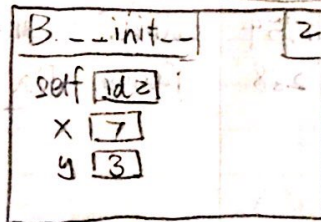 B.__init__ 2
self id2
x 7
y 3